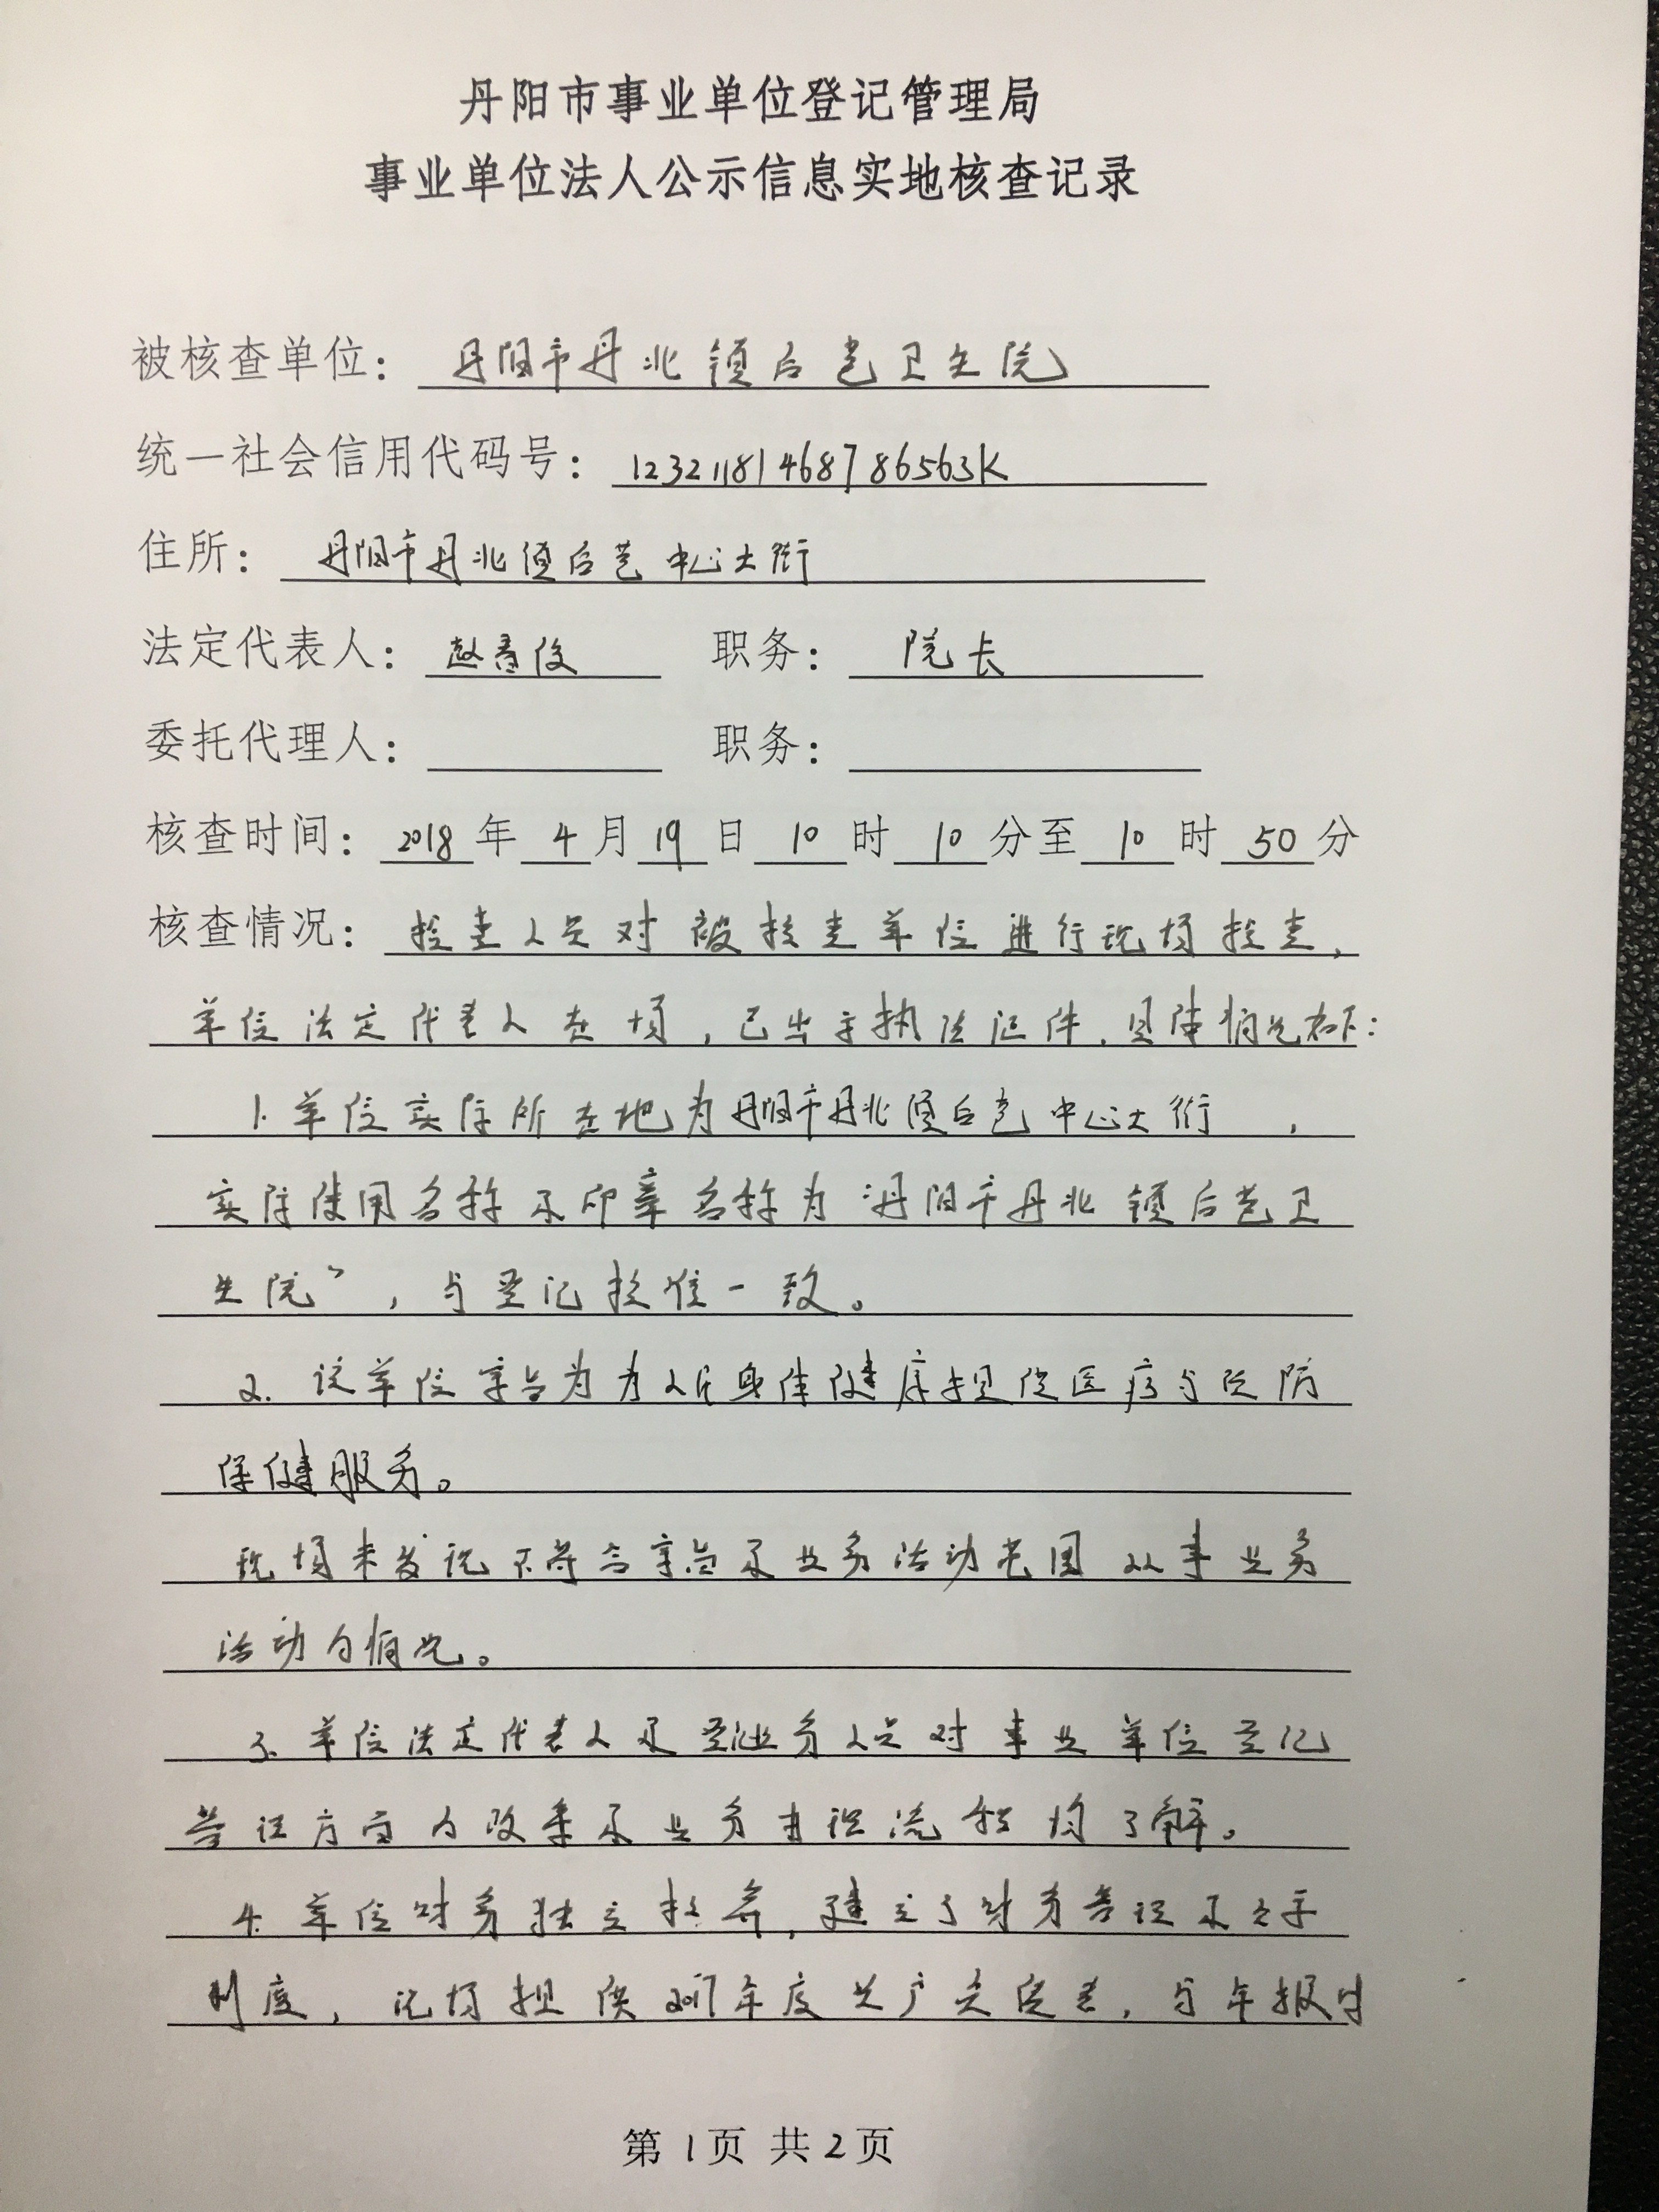 丹阳市事业单位登记管理局
事业单位法人公示信息实地核查记录
被核查单位：丹阳市丹北镇后巷卫生院
统一社会信用代码号：12321181468786563K
住所：丹阳市丹北镇后巷中心大街
法定代表人：赵春俊 职务：院长
委托代理人： 职务：
核查时间：2018年4月19日10时10分至10时50分
核查情况：检查人员对被核查单位进行现场检查，
单位法定代表人在场，已出示执法证件，具体情况如下：
1.单位实际所在地为丹阳市丹北镇后巷中心大街，
实际使用名称及印章名称为“丹阳市丹北镇后巷卫
生院”，与登记核准一致。
2.该单位宗旨为为人民身体健康提供医疗与预防
保健服务。
现场未发现不符合宗旨及业务活动范围从事业务
活动的情况。
3.单位法定代表人及登记业务人员对事业单位登记
方面的政策及业务知识流程均了解。
4.单位财务独立核算，建立了财务管理及公示
制度，现场提供2017年度资产负债表，与年报时
第1页 共2页